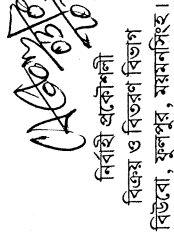 নির্বাহী প্রকৌশলী
বিক্রয় ও বিতরণ বিভাগ
বিউবো, ফুলপুর, ময়মনসিংহ।